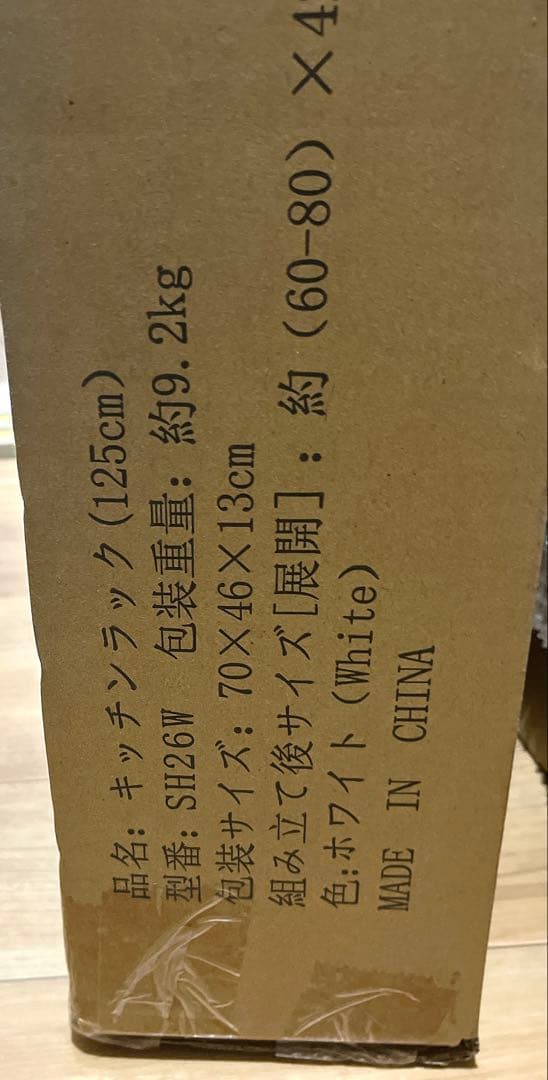 品名: キッチンラック(125cm)
型番: SH26W 包装重量: 約9.2kg
包装サイズ: 70×46×13cm
組み立て後サイズ[展開]: 約(60-80)×4
色:ホワイト(White)
MADE IN CHINA